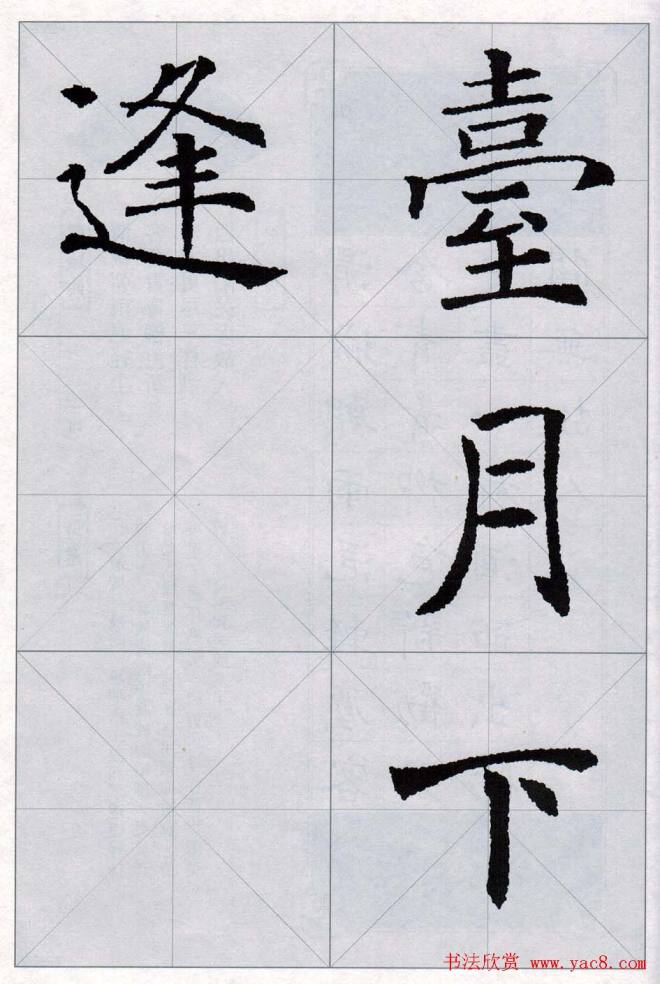 臺月下
逢
书法欣赏 www.yac8.com